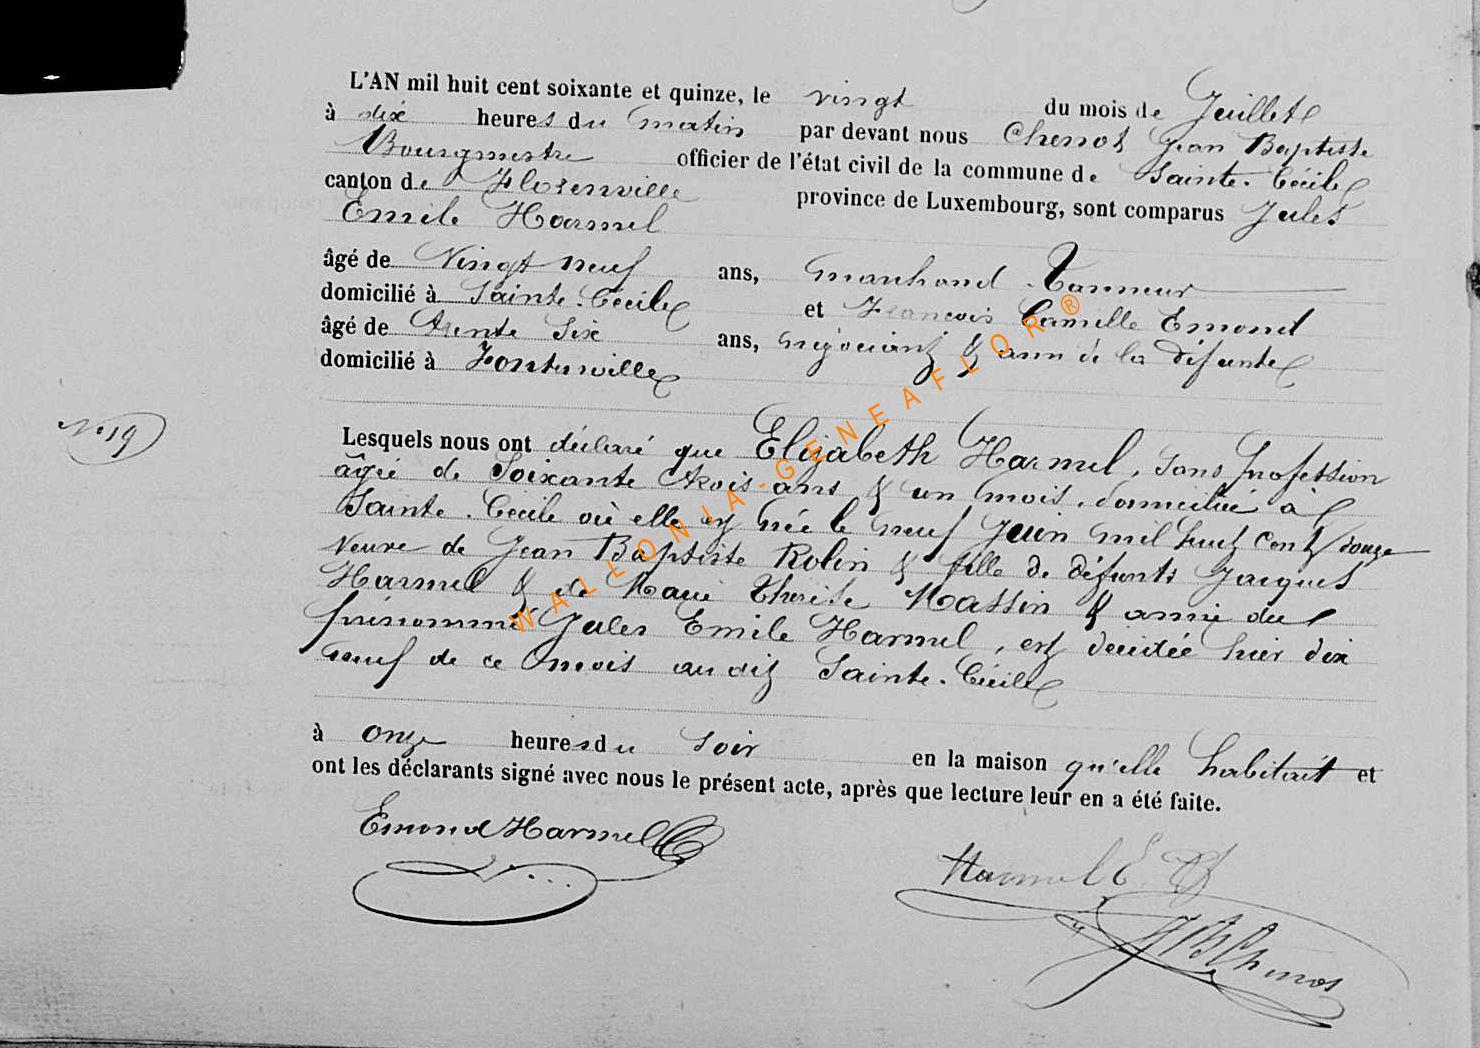 L'AN mil huit cent soixante et quinze, le vingt du mois de Juillet
à dix heures du matin par devant nous Chenot Jean Baptiste
Bourgmestre officier de l'état civil de la commune de Sainte-Cécile
canton de Florenville province de Luxembourg, sont comparus Jules
Emile Harmel
âgé de Vingt neuf ans, marchand Tanneur
domicilié à Sainte-Cécile et François Camille Emond
âgé de Trente Six ans, négociant & ami de la défunte
domicilié à Fontenoille
N° 19
Lesquels nous ont déclaré que Elizabeth Harmel, sans profession
âgée de Soixante trois ans & un mois, domiciliée à
Sainte-Cécile où elle est née le neuf Juin mil huit cent douze
veuve de Jean Baptiste Robin & fille de défunts Jacques
Harmel & de Marie Thérèse Massin & amie du
prénommé Jules Emile Harmel, est décédée hier dix
neuf de ce mois au dit Sainte-Cécile
à onze heures du soir en la maison qu'elle habitait et
ont les déclarants signé avec nous le présent acte, après que lecture leur en a été faite.
Emond Harmel
Harmel E
JB Chenot
WALLONIA-GENEAFLOR®